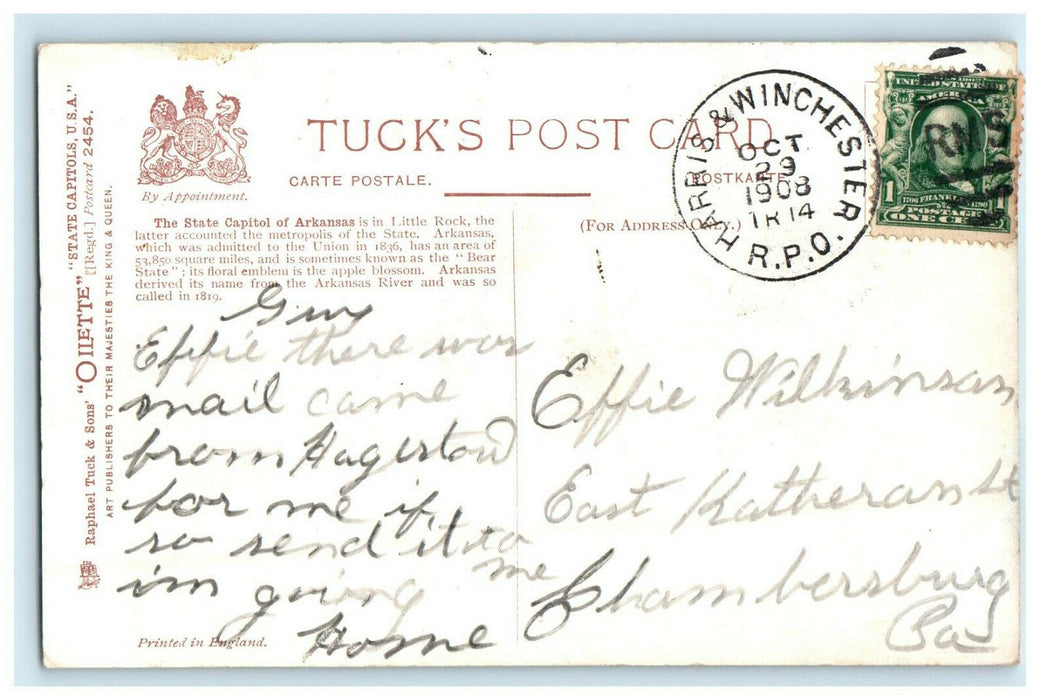 TUCK'S POST CARD
CARTE POSTALE.
POSTKARTE
By Appointment.
(FOR ADDRESS ONLY.)
The State Capitol of Arkansas is in Little Rock, the
latter accounted the metropolis of the State. Arkansas,
which was admitted to the Union in 1836, has an area of
53,850 square miles, and is sometimes known as the "Bear
State"; its floral emblem is the apple blossom. Arkansas
derived its name from the Arkansas River and was so
called in 1819.
Raphael Tuck & Sons' "OILETTE" "STATE CAPITOLS, U.S.A."
[Regd.] Postcard 2454.
ART PUBLISHERS TO THEIR MAJESTIES THE KING & QUEEN.
Printed in England.
HARRIS & WINCHESTER
OCT
29
1908
TR 14
R.P.O.
UNITED STATES OF
AMERICA
RMS
1 1706 FRANKLIN 1790 1
POSTAGE
ONE CENT
Guy
Effie there was
mail came
from Hagerstow
for me if
so send it to
me
im going
Home
Effie Wilkinsan
East Katheran St
Chambersburg
Pa